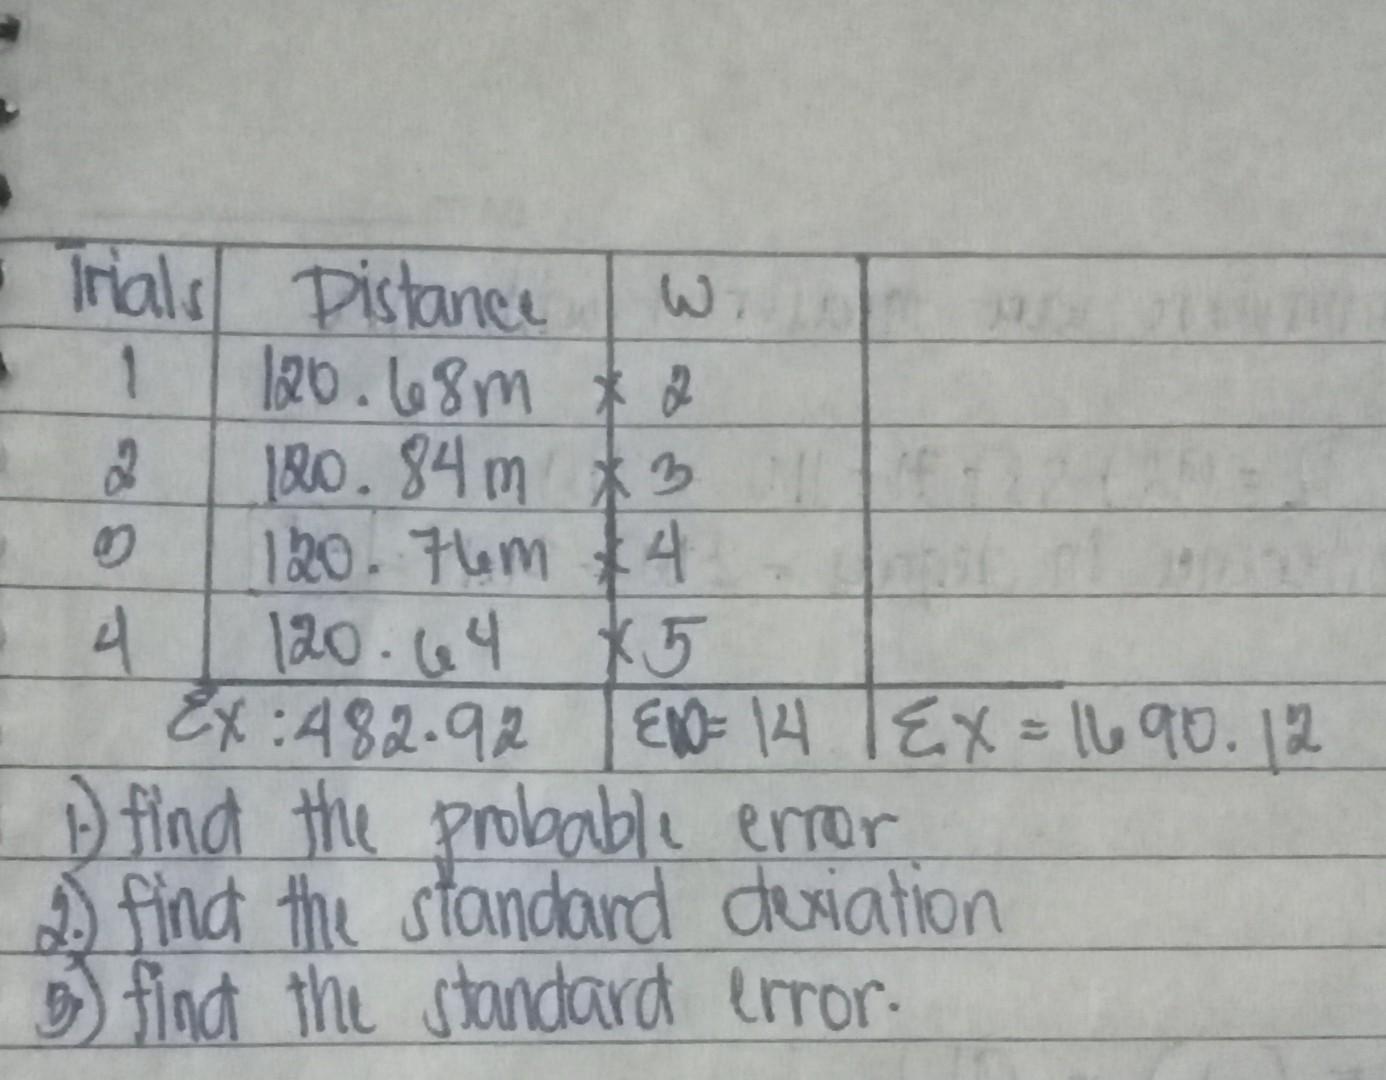 Trials Distance W.
1 120.68m × 2
2 120.84m × 3
3 120.76m × 4
4 120.64 × 5
Σx : 482.92 ΣW= 14 Σx = 1690.12
1.) find the probable error
2.) find the standard deviation
3.) find the standard error.